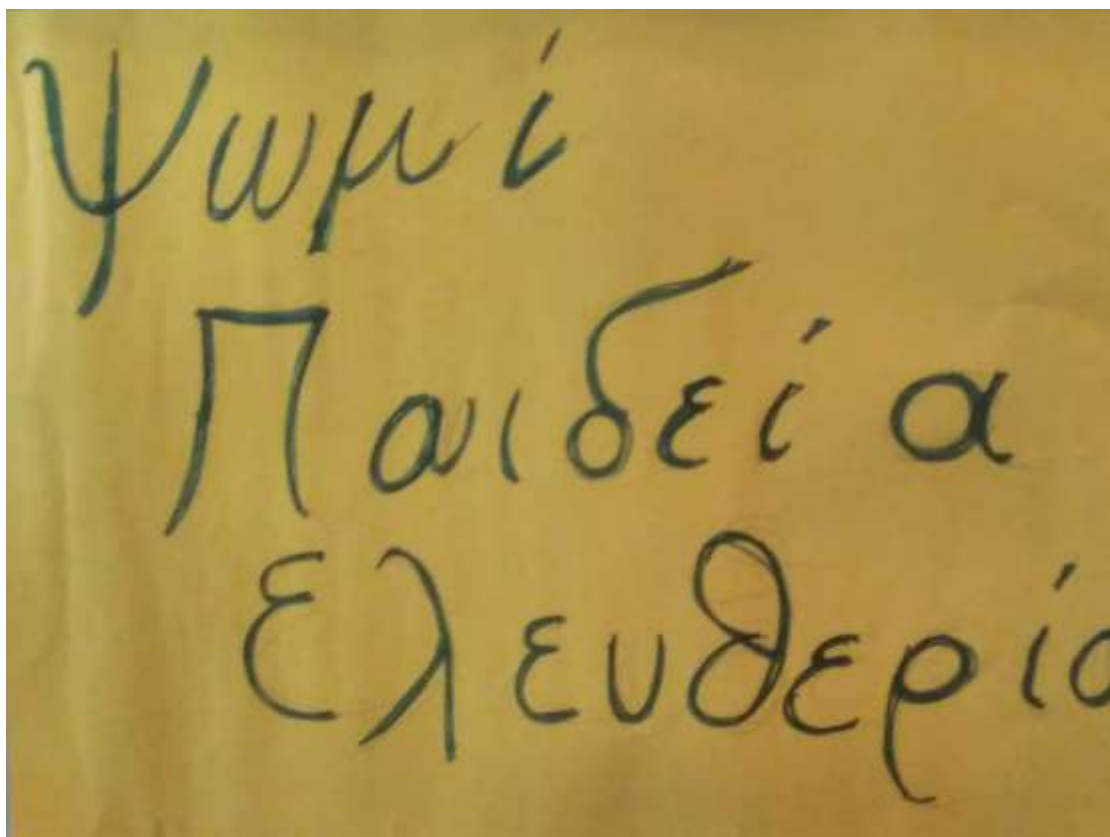 Ψωμί
Παιδεία
Ελευθερία